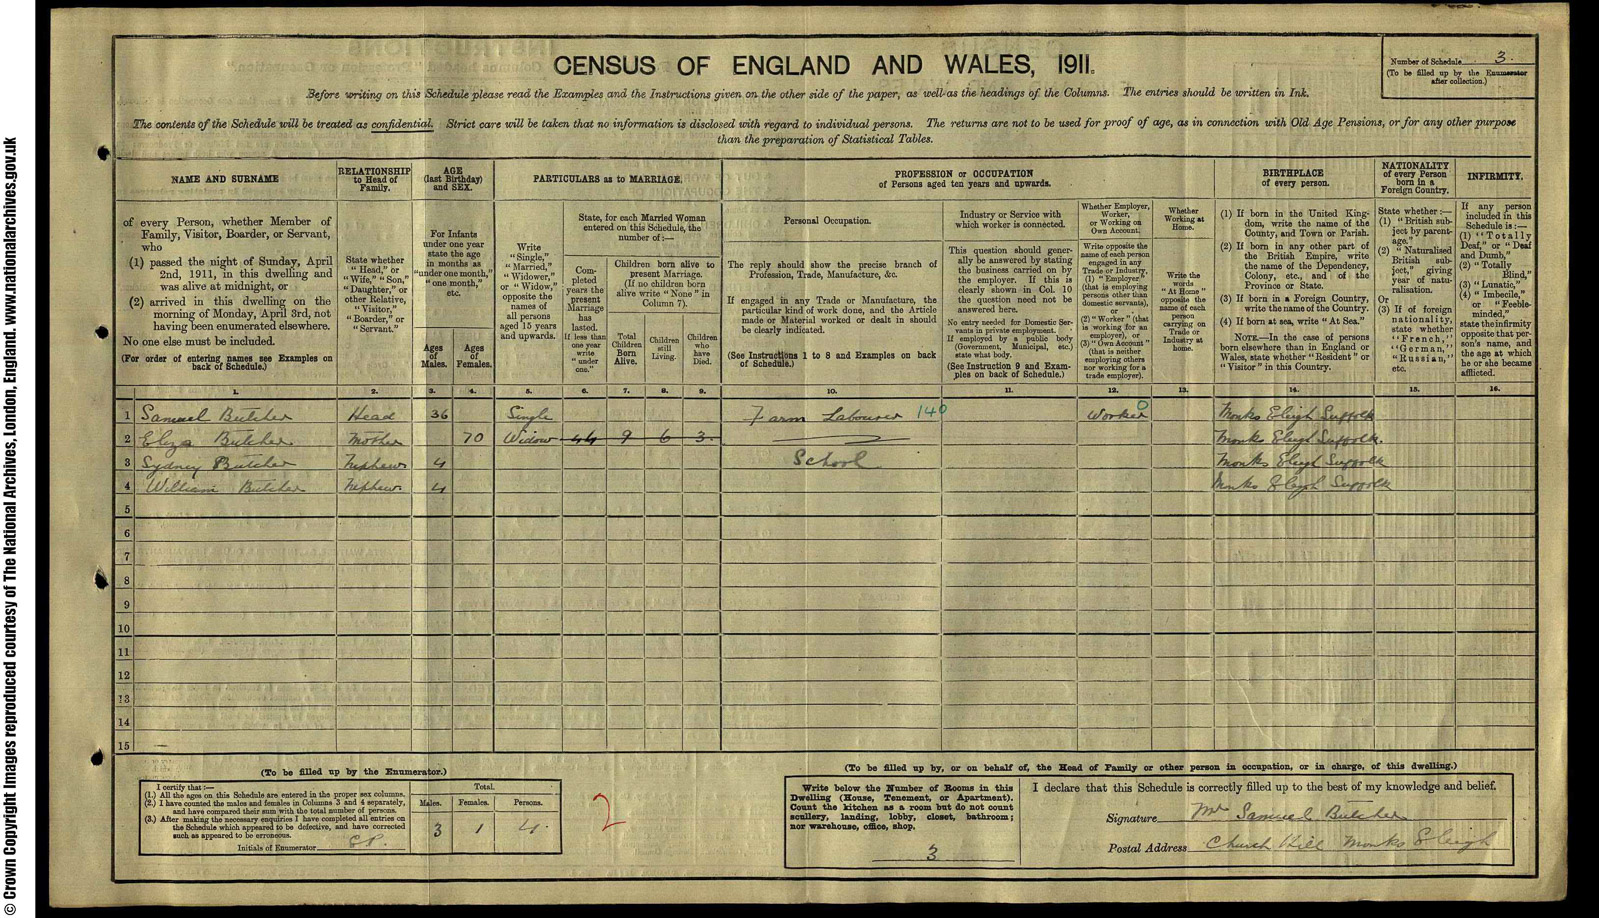 © Crown Copyright Images reproduced courtesy of The National Archives, London, England. www.nationalarchives.gov.uk
CENSUS OF ENGLAND AND WALES, 1911.
Number of Schedule 3.
(To be filled up by the Enumerator after collection.)
Before writing on this Schedule please read the Examples and the Instructions given on the other side of the paper, as well as the headings of the Columns. The entries should be written in Ink.
The contents of the Schedule will be treated as confidential. Strict care will be taken that no information is disclosed with regard to individual persons. The returns are not to be used for proof of age, as in connection with Old Age Pensions, or for any other purpose
than the preparation of Statistical Tables.
NAME AND SURNAME
of every Person, whether Member of
Family, Visitor, Boarder, or Servant,
who
(1) passed the night of Sunday, April
2nd, 1911, in this dwelling and
was alive at midnight, or
(2) arrived in this dwelling on the
morning of Monday, April 3rd, not
having been enumerated elsewhere.
No one else must be included.
(For order of entering names see Examples on
back of Schedule.)
RELATIONSHIP
to Head of
Family.
State whether
"Head," or
"Wife," "Son,"
"Daughter," or
other Relative,
"Visitor,"
"Boarder," or
"Servant."
AGE
(last Birthday)
and SEX.
For Infants
under one year
state the age
in months as
"under one month,"
"one month,"
etc.
Ages
of
Males.
Ages
of
Females.
PARTICULARS as to MARRIAGE.
Write
"Single,"
"Married,"
"Widower,"
or "Widow,"
opposite the
names of
all persons
aged 15 years
and upwards.
State, for each Married Woman
entered on this Schedule, the
number of:—
Com-
pleted
years the
present
Marriage
has
lasted.
If less than
one year
write
"under
one."
Children born alive to
present Marriage.
(If no children born
alive write "None" in
Column 7).
Total
Children
Born
Alive.
Children
still
Living.
Children
who
have
Died.
PROFESSION or OCCUPATION
of Persons aged ten years and upwards.
Personal Occupation.
The reply should show the precise branch of
Profession, Trade, Manufacture, &c.
If engaged in any Trade or Manufacture, the
particular kind of work done, and the Article
made or Material worked or dealt in should
be clearly indicated.
(See Instructions 1 to 8 and Examples on back
of Schedule.)
Industry or Service with
which worker is connected.
This question should gener-
ally be answered by stating
the business carried on by
the employer. If this is
clearly shown in Col. 10
the question need not be
answered here.
No entry needed for Domestic Ser-
vants in private employment.
If employed by a public body
(Government, Municipal, etc.)
state what body.
(See Instruction 9 and Exam-
ples on back of Schedule.)
Whether Employer,
Worker,
or Working on
Own Account.
Write opposite the
name of each person
engaged in any
Trade or Industry,
(1) "Employer"
(that is employing
persons other than
domestic servants),
or
(2) "Worker" (that
is working for an
employer), or
(3) "Own Account"
(that is neither
employing others
nor working for a
trade employer).
Whether
Working at
Home.
Write the
words
"At Home"
opposite the
name of each
person
carrying on
Trade or
Industry at
home.
BIRTHPLACE
of every person.
(1) If born in the United King-
dom, write the name of the
County, and Town or Parish.
(2) If born in any other part of
the British Empire, write
the name of the Dependency,
Colony, etc., and of the
Province or State.
(3) If born in a Foreign Country,
write the name of the Country.
(4) If born at sea, write "At Sea."
NOTE.—In the case of persons
born elsewhere than in England or
Wales, state whether "Resident" or
"Visitor" in this Country.
NATIONALITY
of every Person
born in a
Foreign Country.
State whether:—
(1) "British sub-
ject by parent-
age."
(2) "Naturalised
British sub-
ject," giving
year of natu-
ralisation.
Or
(3) If of foreign
nationality,
state whether
"French,"
"German,"
"Russian,"
etc.
INFIRMITY.
If any person
included in this
Schedule is:—
(1) "Totally
Deaf," or "Deaf
and Dumb,"
(2) "Totally
Blind,"
(3) "Lunatic,"
(4) "Imbecile,"
or "Feeble-
minded,"
state the infirmity
opposite that per-
son's name, and
the age at which
he or she became
afflicted.
1. 2. 3. 4. 5. 6. 7. 8. 9. 10. 11. 12. 13. 14. 15. 16.
1 Samuel Butcher Head 36 Single Farm Labourer 140 Worker 0 Monks Eleigh Suffolk
2 Eliza Butcher Mother 70 Widow 44 9 6 3 Monks Eleigh Suffolk.
3 Sydney Butcher Nephew 4 School Monks Eleigh Suffolk
4 William Butcher Nephew 4 Monks Eleigh Suffolk
5
6
7
8
9
10
11
12
13
14
15
(To be filled up by the Enumerator.)
I certify that:—
(1.) All the ages on this Schedule are entered in the proper sex columns.
(2.) I have counted the males and females in Columns 3 and 4 separately,
and have compared their sum with the total number of persons.
(3.) After making the necessary enquiries I have completed all entries on
the Schedule which appeared to be defective, and have corrected
such as appeared to be erroneous.
Initials of Enumerator
Total.
Males. Females. Persons.
3 1 4.
2
(To be filled up by, or on behalf of, the Head of Family or other person in occupation, or in charge, of this dwelling.)
Write below the Number of Rooms in this
Dwelling (House, Tenement, or Apartment).
Count the kitchen as a room but do not count
scullery, landing, lobby, closet, bathroom;
nor warehouse, office, shop.
3
I declare that this Schedule is correctly filled up to the best of my knowledge and belief.
Signature Mr Samuel Butcher
Postal Address Church Hill Monks Eleigh